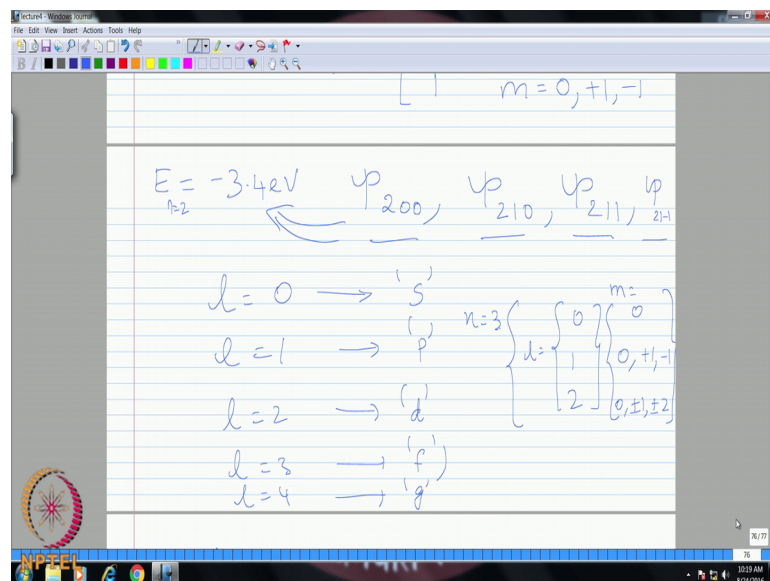 lecture4 - Windows Journal
File Edit View Insert Actions Tools Help
m = 0, +1, -1
E n=2 = -3.4eV φ200, φ210, φ211, φ21-1
l = 0 → 's'
l = 1 → 'p'
l = 2 → 'd'
l = 3 → 'f')
l = 4 → 'g'
n=3 { l = { 0 1 2 }
m=
0
0, +1, -1
0, ±1, ±2
76/77
76
NPTEL
10:19 AM